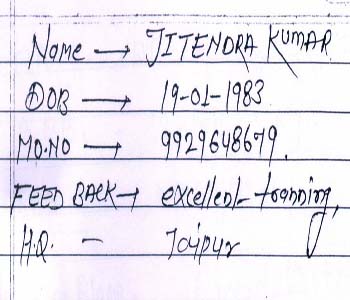 Name → JITENDRA KUMAR
DOB → 19-01-1983
MO.NO → 9929648679.
FEED BACK → excellent tranning,
H.Q. - Jaipur